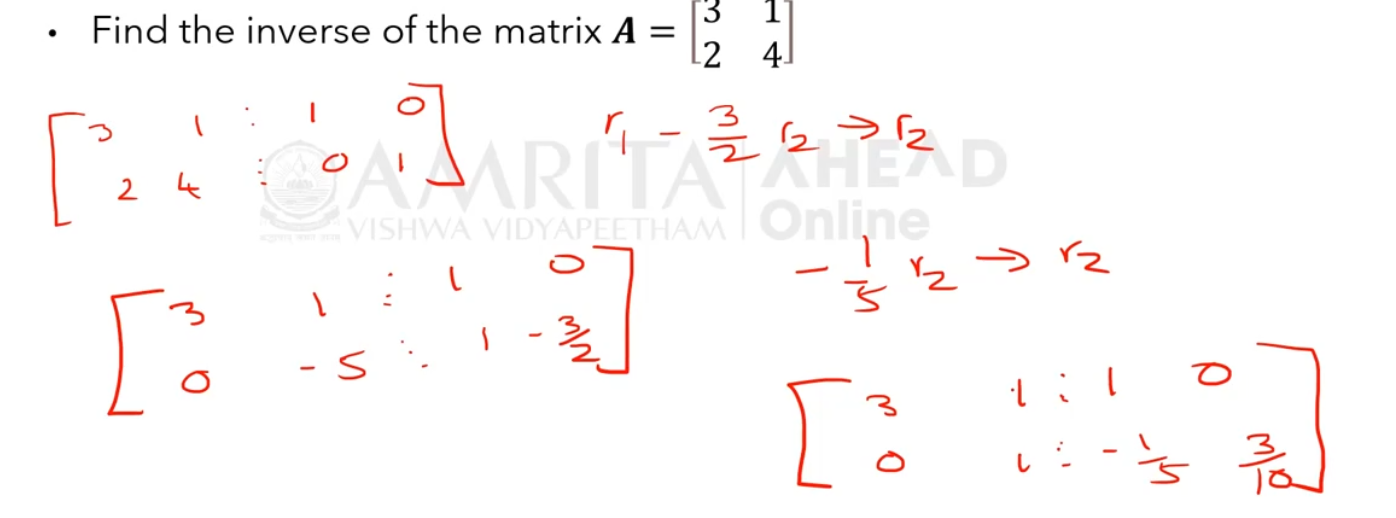 • Find the inverse of the matrix A = [3 1
2 4]
[3 1 : 1 0
2 4 : 0 1]
r1 - 3/2 r2 → r2
AMRITA AHEAD
VISHWA VIDYAPEETHAM Online
[3 1 : 1 0
0 -5 : 1 -3/2]
-1/5 r2 → r2
[3 1 : 1 0
0 1 : -1/5 3/10]